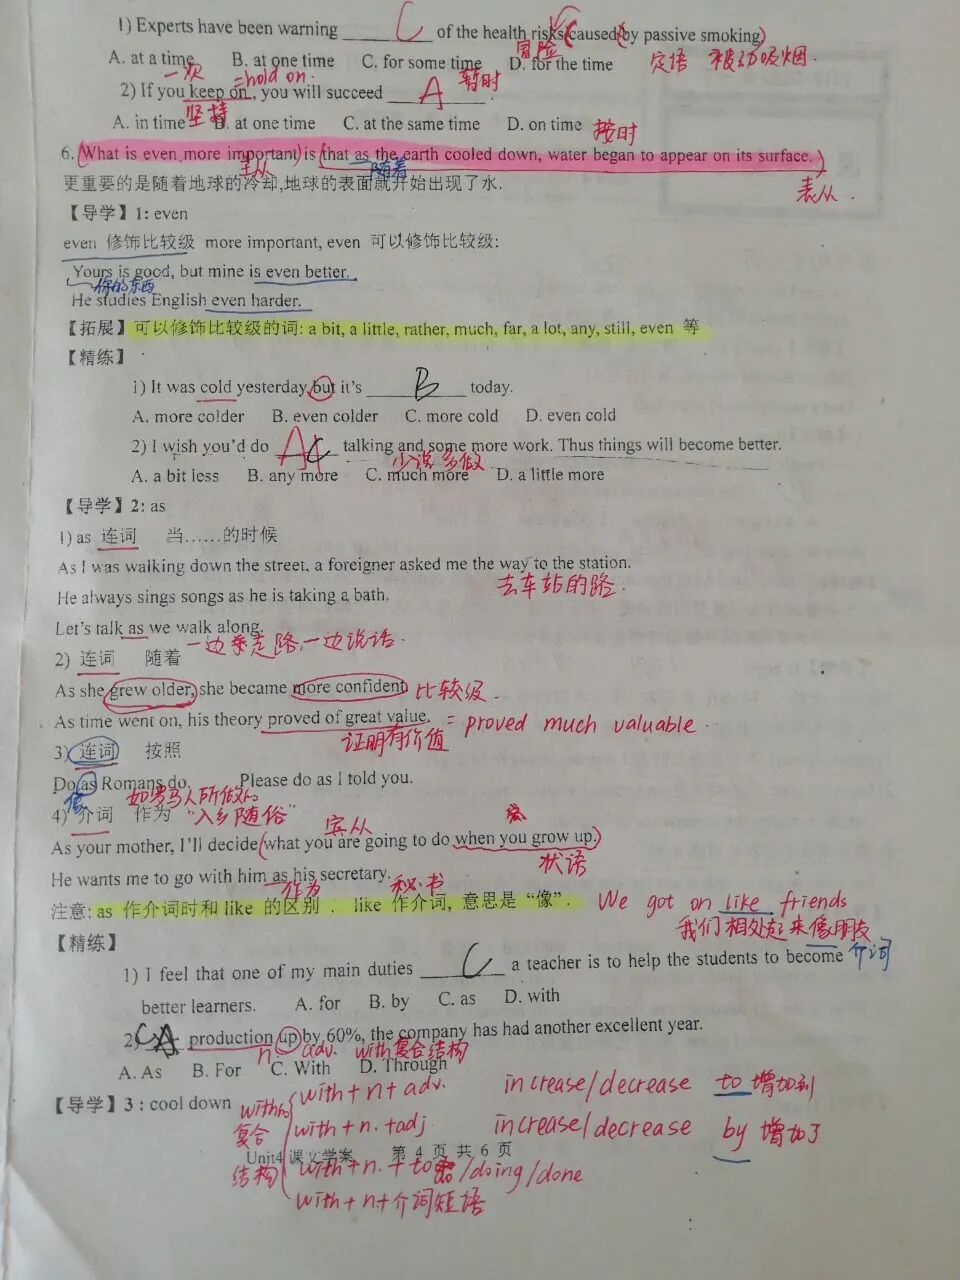 1) Experts have been warning C of the health risks (caused (by passive smoking)
冒险
A. at a time B. at one time C. for some time D. for the time 定语 被动吸烟.
一次 =hold on. 暂时
2) If you keep on, you will succeed A .
坚持
A. in time B. at one time C. at the same time D. on time 按时
6. (What is even more important) is (that as the earth cooled down, water began to appear on its surface.)
主从 随着
更重要的是随着地球的冷却,地球的表面就开始出现了水. 表从.
【导学】1: even
even 修饰比较级 more important, even 可以修饰比较级:
Yours is good, but mine is even better.
你的东西
He studies English even harder.
【拓展】可以修饰比较级的词: a bit, a little, rather, much, far, a lot, any, still, even 等
【精练】
1) It was cold yesterday, but it's B today.
A. more colder B. even colder C. more cold D. even cold
2) I wish you'd do A talking and some more work. Thus things will become better.
少说多做
A. a bit less B. any more C. much more D. a little more
【导学】2: as
1) as 连词 当……的时候
As I was walking down the street, a foreigner asked me the way to the station.
去车站的路.
He always sings songs as he is taking a bath.
Let's talk as we walk along.
一边走路,一边说话.
2) 连词 随着
As she grew older, she became more confident 比较级.
As time went on, his theory proved of great value. = proved much valuable.
证明有价值
3) 连词 按照
Do as Romans do. Please do as I told you.
像 如罗马人所做的
4) 介词 作为 "入乡随俗"
宾从
As your mother, I'll decide (what you are going to do when you grow up.)
状语
He wants me to go with him as his secretary.
作为 秘书
注意: as 作介词时和 like 的区别. like 作介词, 意思是 "像". We got on like friends
我们相处起来像朋友
【精练】
1) I feel that one of my main duties C a teacher is to help the students to become 介词
better learners. A. for B. by C. as D. with
2) C production up by 60%, the company has had another excellent year.
n adv. with复合结构
A. As B. For C. With D. Through
【导学】3 : cool down with的 with + n + adv. increase/decrease to 增加到
复合 with + n. + adj increase/decrease by 增加了
Unit4 课文学案 第 4 页 共 6 页
结构 with + n. + to do /doing/done
with + n + 介词短语